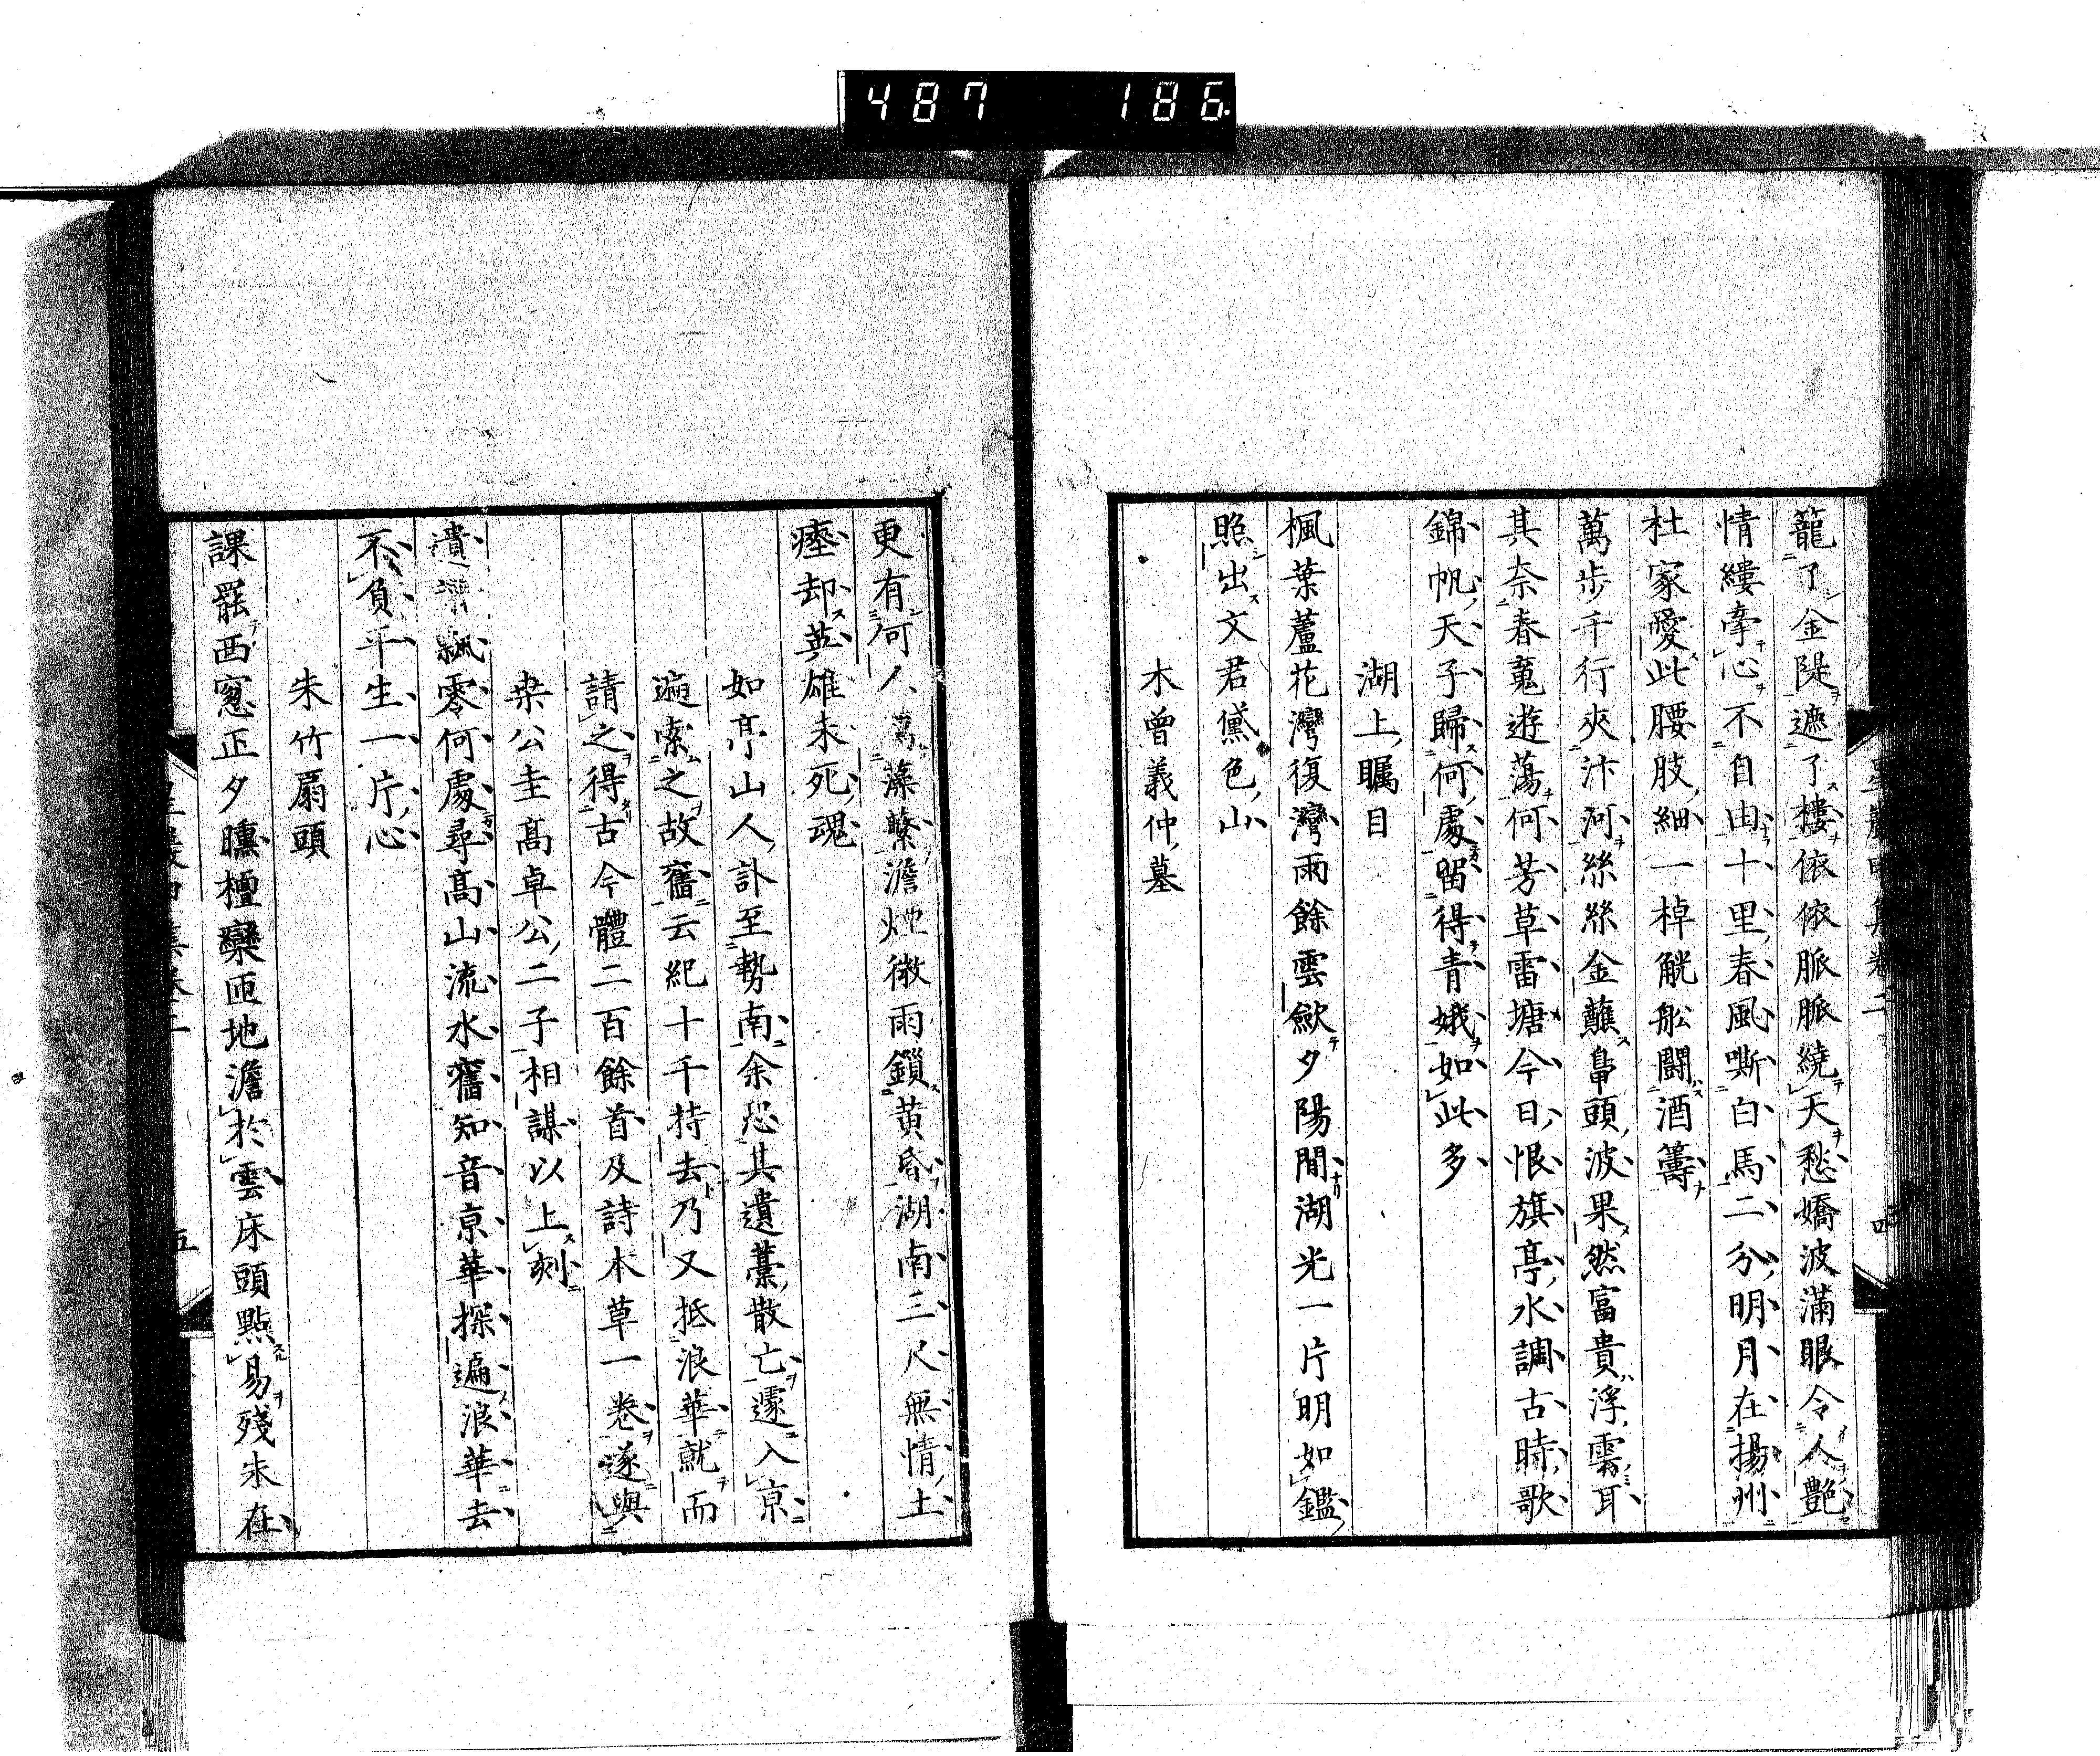 487 186
籠了金隄遮了樓依依脈脈繞天愁嬌波滿眼令人艷
情縷牽心不自由十里春風嘶白馬二分明月在揚州
杜家愛此腰肢細一棹觥船鬪酒籌
萬步千行夾汴河絲絲金蘸黽頭波果然富貴浮雲耳
其奈春蒐遊蕩何芳草雷塘今日恨旗亭水調古時歌
錦帆天子歸何處留得青娥如此多
湖上矚目
楓葉蘆花灣復灣雨餘雲歛夕陽閒湖光一片明如鑑
照出文君黛色山
木曾義仲墓
更有何人藻蘩澹煙微雨鎖黄昏湖南三尺無情土
瘞却英雄未死魂
如亭山人訃至勢南余恐其遺藁散亡遽入京
遍索之故舊云紀十千持去乃又抵浪華就而
請之得古今體二百餘首及詩本草一卷遂與
桒公圭髙卓公二子相謀以上刻
遺飄零何處尋髙山流水舊知音京華探遍浪華去
不負平生一片心
朱竹扇頭
課罷西窓正夕曛檀欒匝地澹於雲床頭點易殘朱在
五